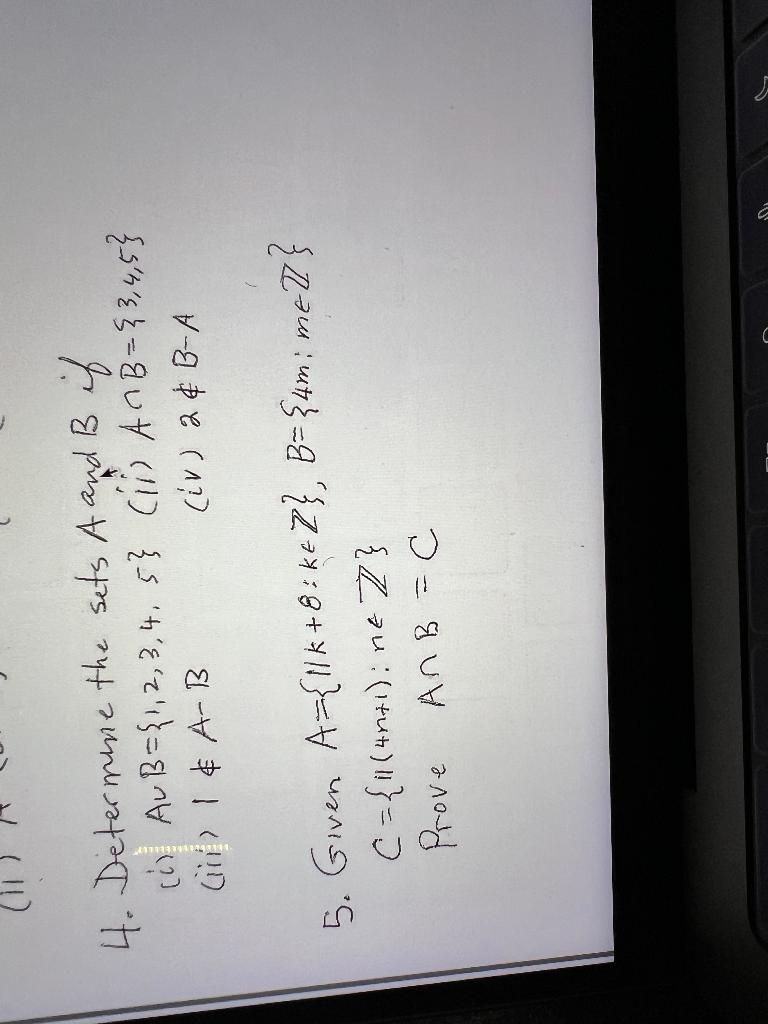 4. Determine the sets A and B if
(i) A∪B={1,2,3,4,5} (ii) A∩B={3,4,5}
(iii) 1∉A-B (iv) 2∉B-A
5. Given A={11k+8:k∈ℤ}, B={4m:m∈ℤ}
C={11(4n+1):n∈ℤ}
Prove A∩B=C